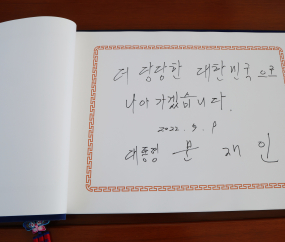 더 당당한 대한민국으로
나아가겠습니다.
2022. 3. 9
대통령 문 재 인